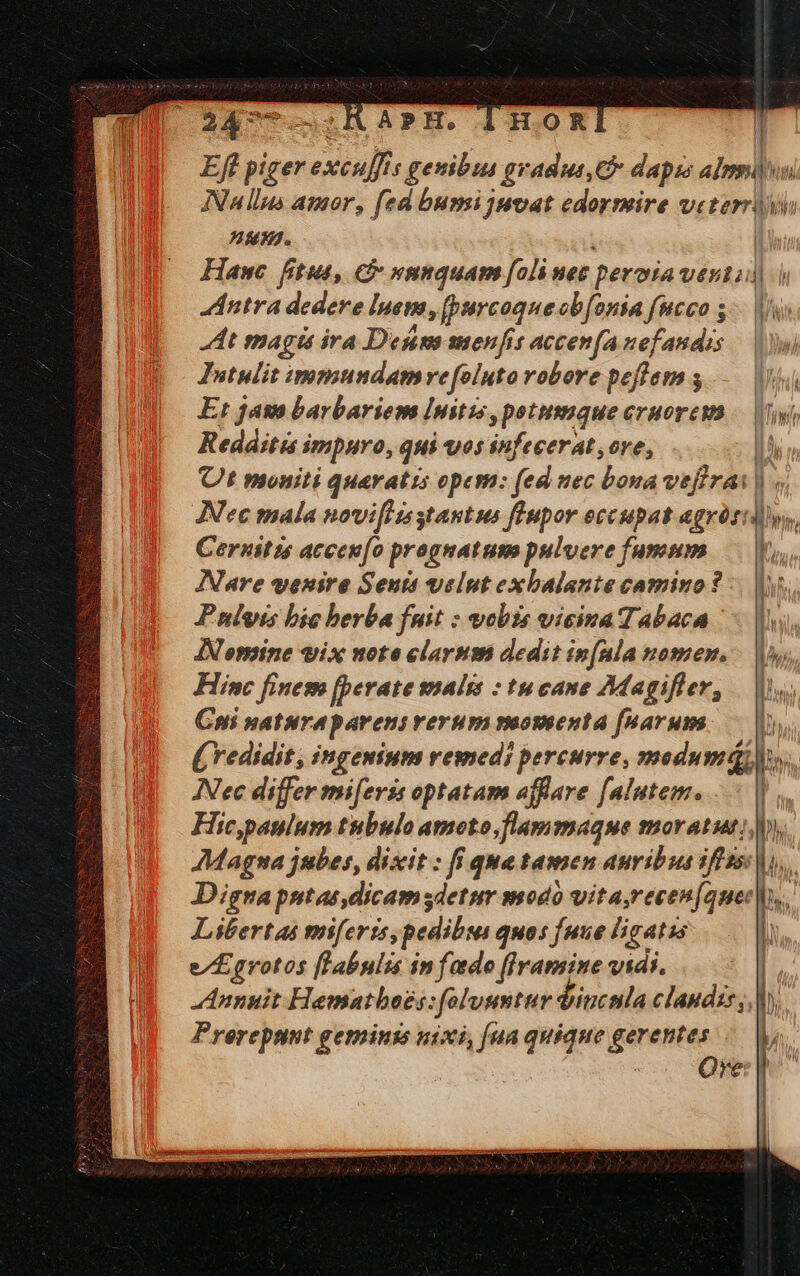 24 RAPH. THORI
Eſt piger excuſſis genibus gradus, & dapis almæ
Nullus amor, ſed humi juvat edormire veter-
num.
Hanc ſitus, & nunquam ſoli nec pervia ventis
Antra dedere luem, ſpurcoque obſonia ſucco;
At magis ira Deûm menſis accenſa nefandis
Intulit immundam reſoluto robore peſtem;
Et jam barbariem luitis, potumque cruorem
Redditis impuro, qui vos infecerat, ore,
Ut moniti quæratis opem: ſed nec bona veſtras
Nec mala noviſtis, tantus ſtupor occupat ægros:
Cernitis accenſo prognatum pulvere fumum
Nare venire Senis velut exhalante camino?
Pulvis hic herba fuit: vobis vicina Tabaca
Nomine vix noto clarum dedit inſula nomen.
Hinc finem ſperate malis: tu cane Magiſter,
Cui natura parens rerum momenta ſuarum
Credidit, ingenium remedî percurre, modumq́;
Nec differ miſeris optatam afflare ſalutem.
Hic, paulum tubulo amoto, flammaque moratus,
Magna jubes, dixit: ſi qua tamen auribus iſtis
Digna putas, dicam; detur modò vita, recenſque
Libertas miſeris, pedibus quos fune ligatis
Ægrotos ſtabulis in fœdo ſtramine vidi.
Annuit Hematheës: ſolvuntur vincula claudis,
Prorepunt geminis nixi, ſua quique gerentes
Ore: